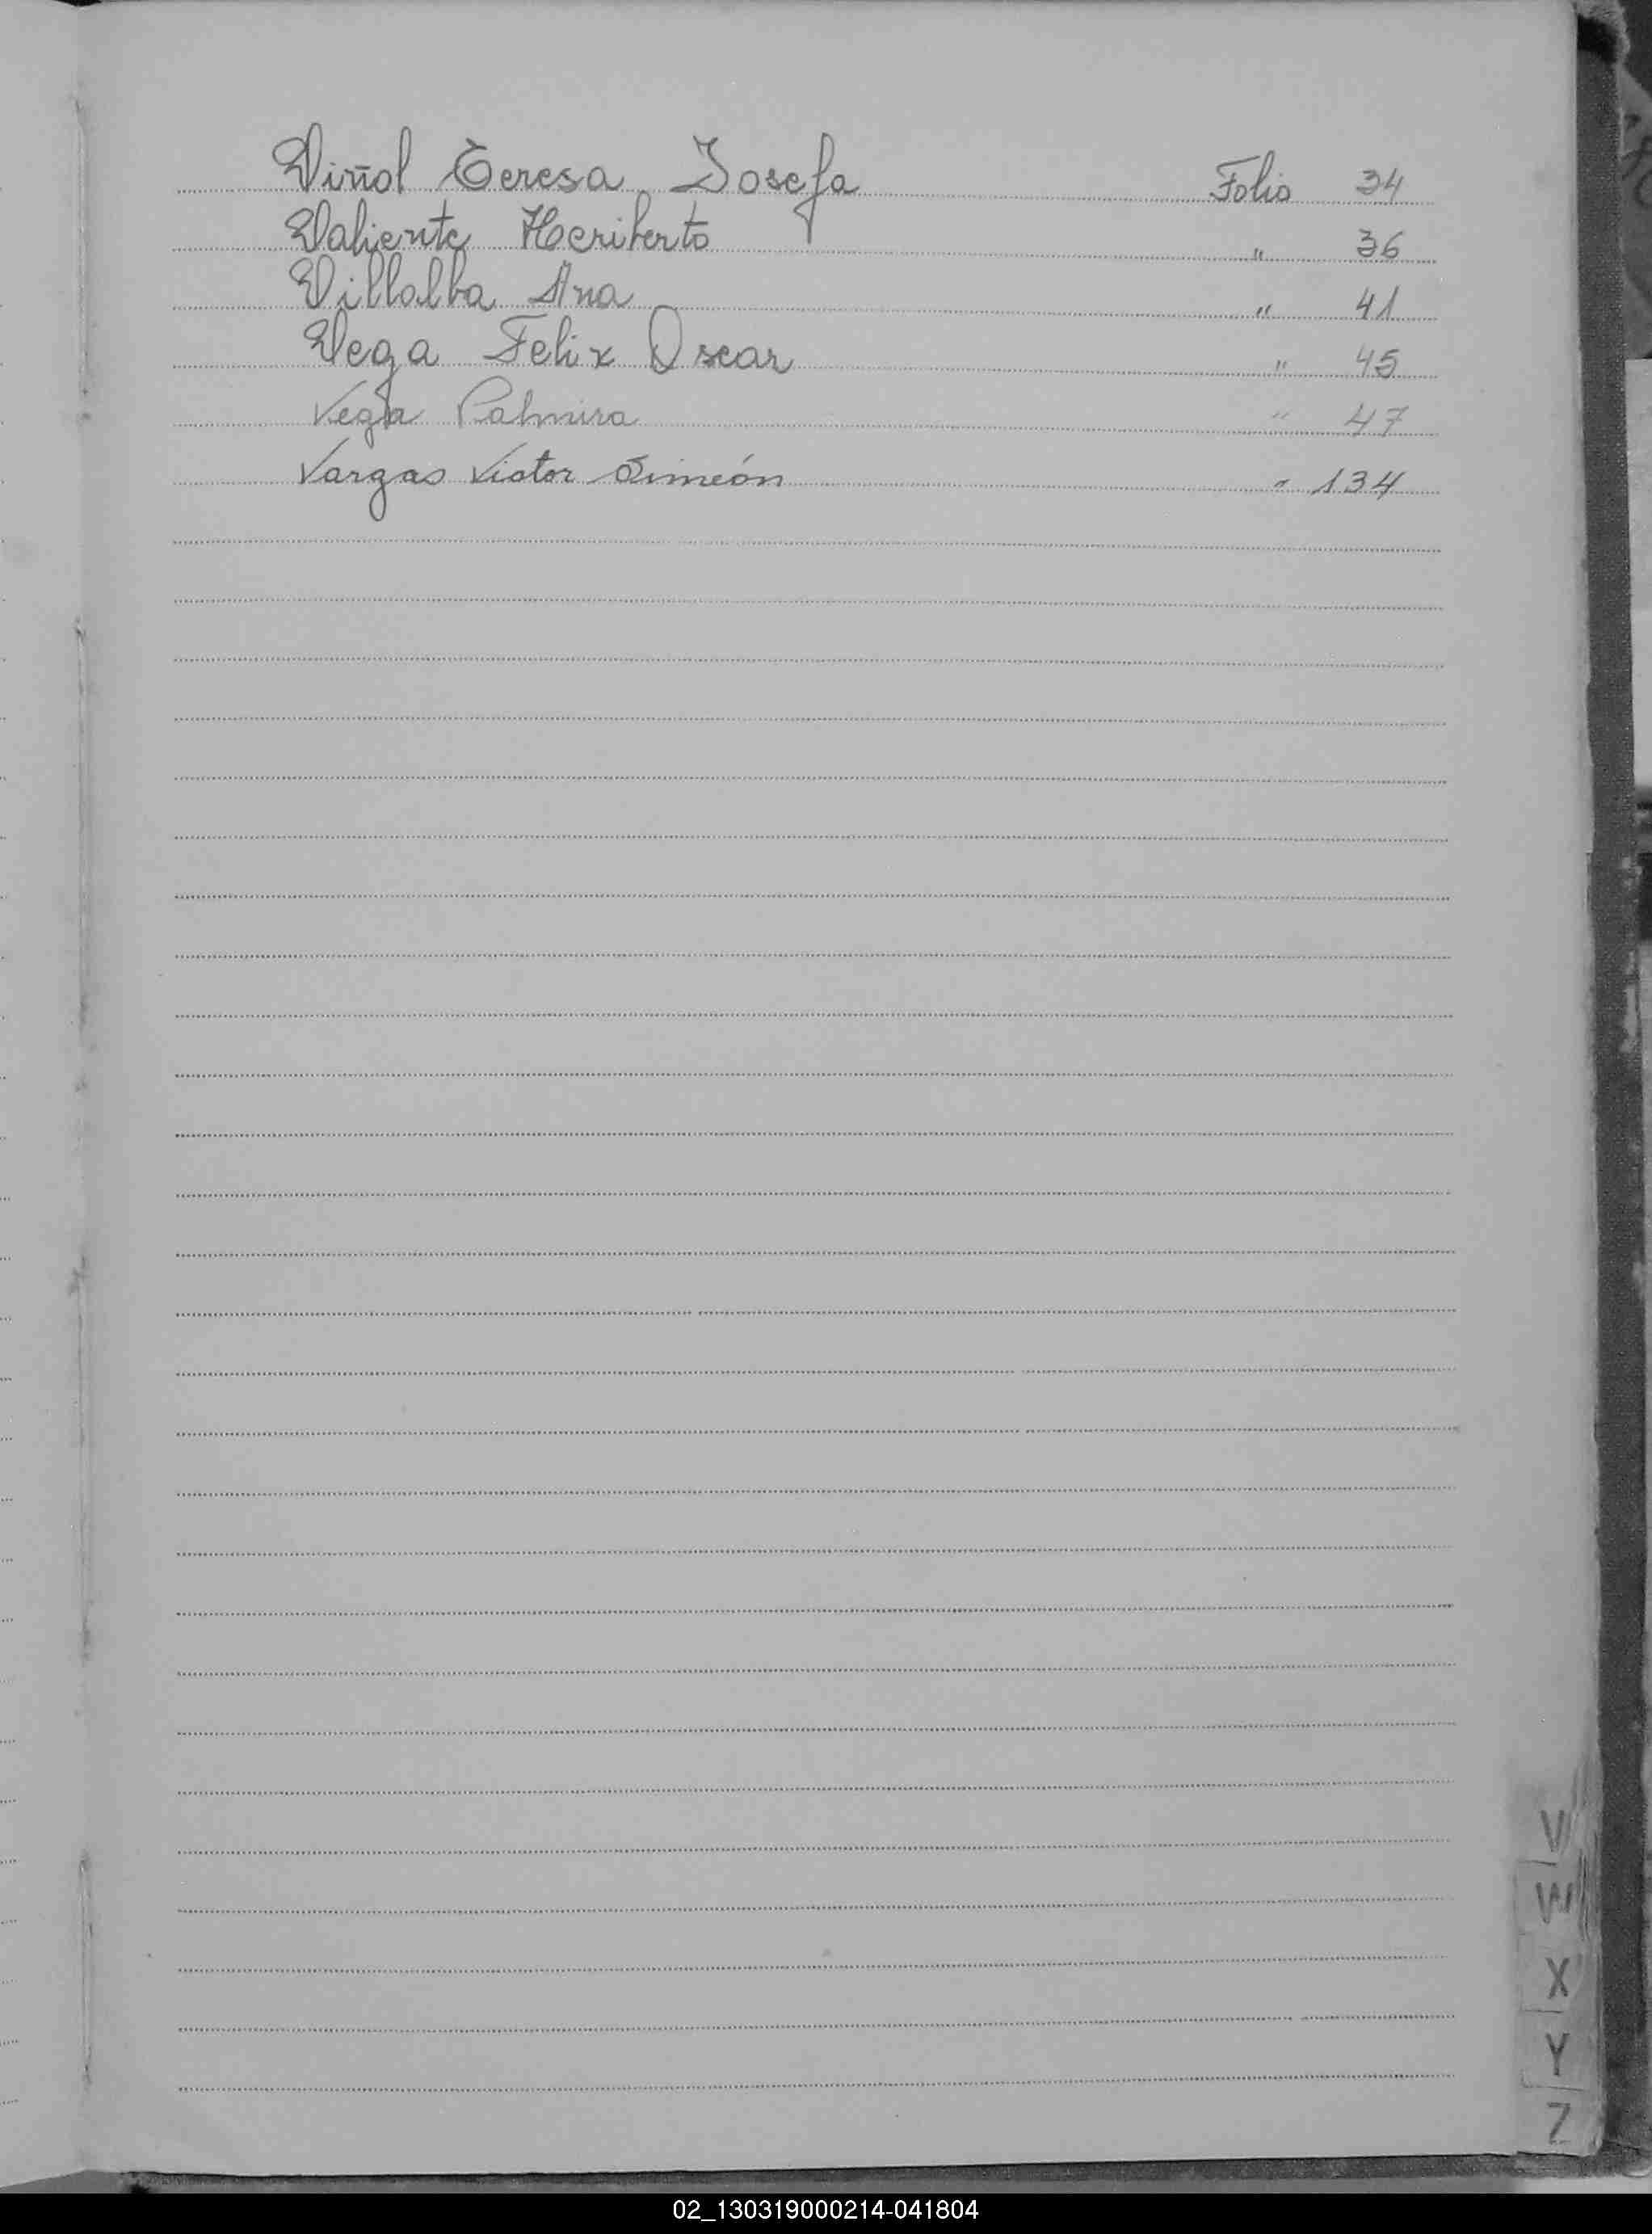 Viñol Teresa Josefa Folio 34
Valiente Heriberto " 36
Villalba Ana " 41
Vega Felix Oscar " 45
Vega Palmira " 47
Vargas Victor Simeón " 134
V
W
X
Y
Z
02_130319000214-041804